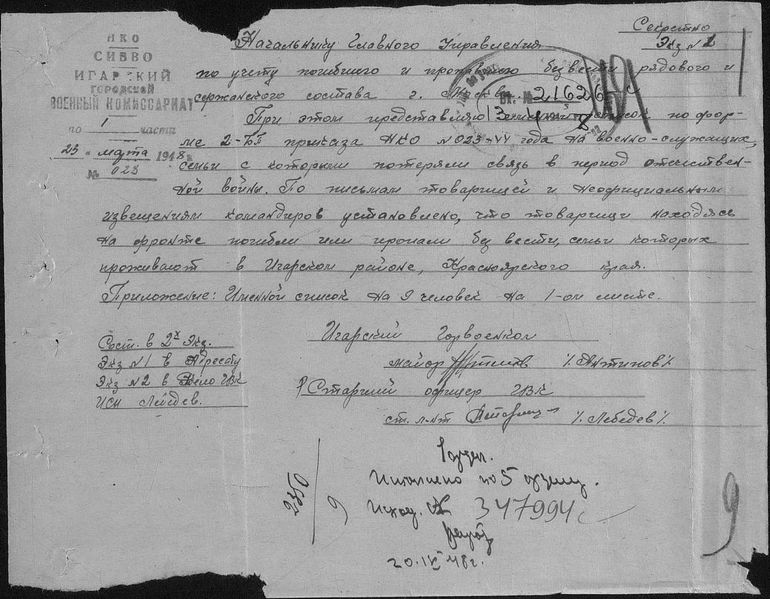 Секретно
Экз №1
НКО
СИБВО
ИГАРСКИЙ
ГОРОДСКОЙ
ВОЕННЫЙ КОМИССАРИАТ
по 1 части
23 марта 1948 г.
№ 023
Начальнику Главного Управления
по учету погибшего и пропавшего без вести рядового и
сержанского состава г. Москва
21626
При этом представляю список по фор-
ме 2-БП приказа НКО №023-44 года на военно-служащих,
семьи с которыми потеряли связь в период отечествен-
ной войны. По письмам товарищей и неофициальным
извещениям командиров установлено, что товарищи находясь
на фронте погибли или пропали без вести, семьи которых
проживают в Игарском районе, Красноярского края.
Приложение: Именной список на 9 человек на 1-ом листе.
Сост. в 2х Экз.
Экз №1 в Адресату
Экз №2 в Дело ГВК
Исп Лебедев.
Игарский Горвоенком
майор /Антипов/
Старший офицер ГВК
ст. л-нт /Лебедев/
Исполнено по 5 отделу.
Исход. № 347994
20.IV 48 г.
9
9